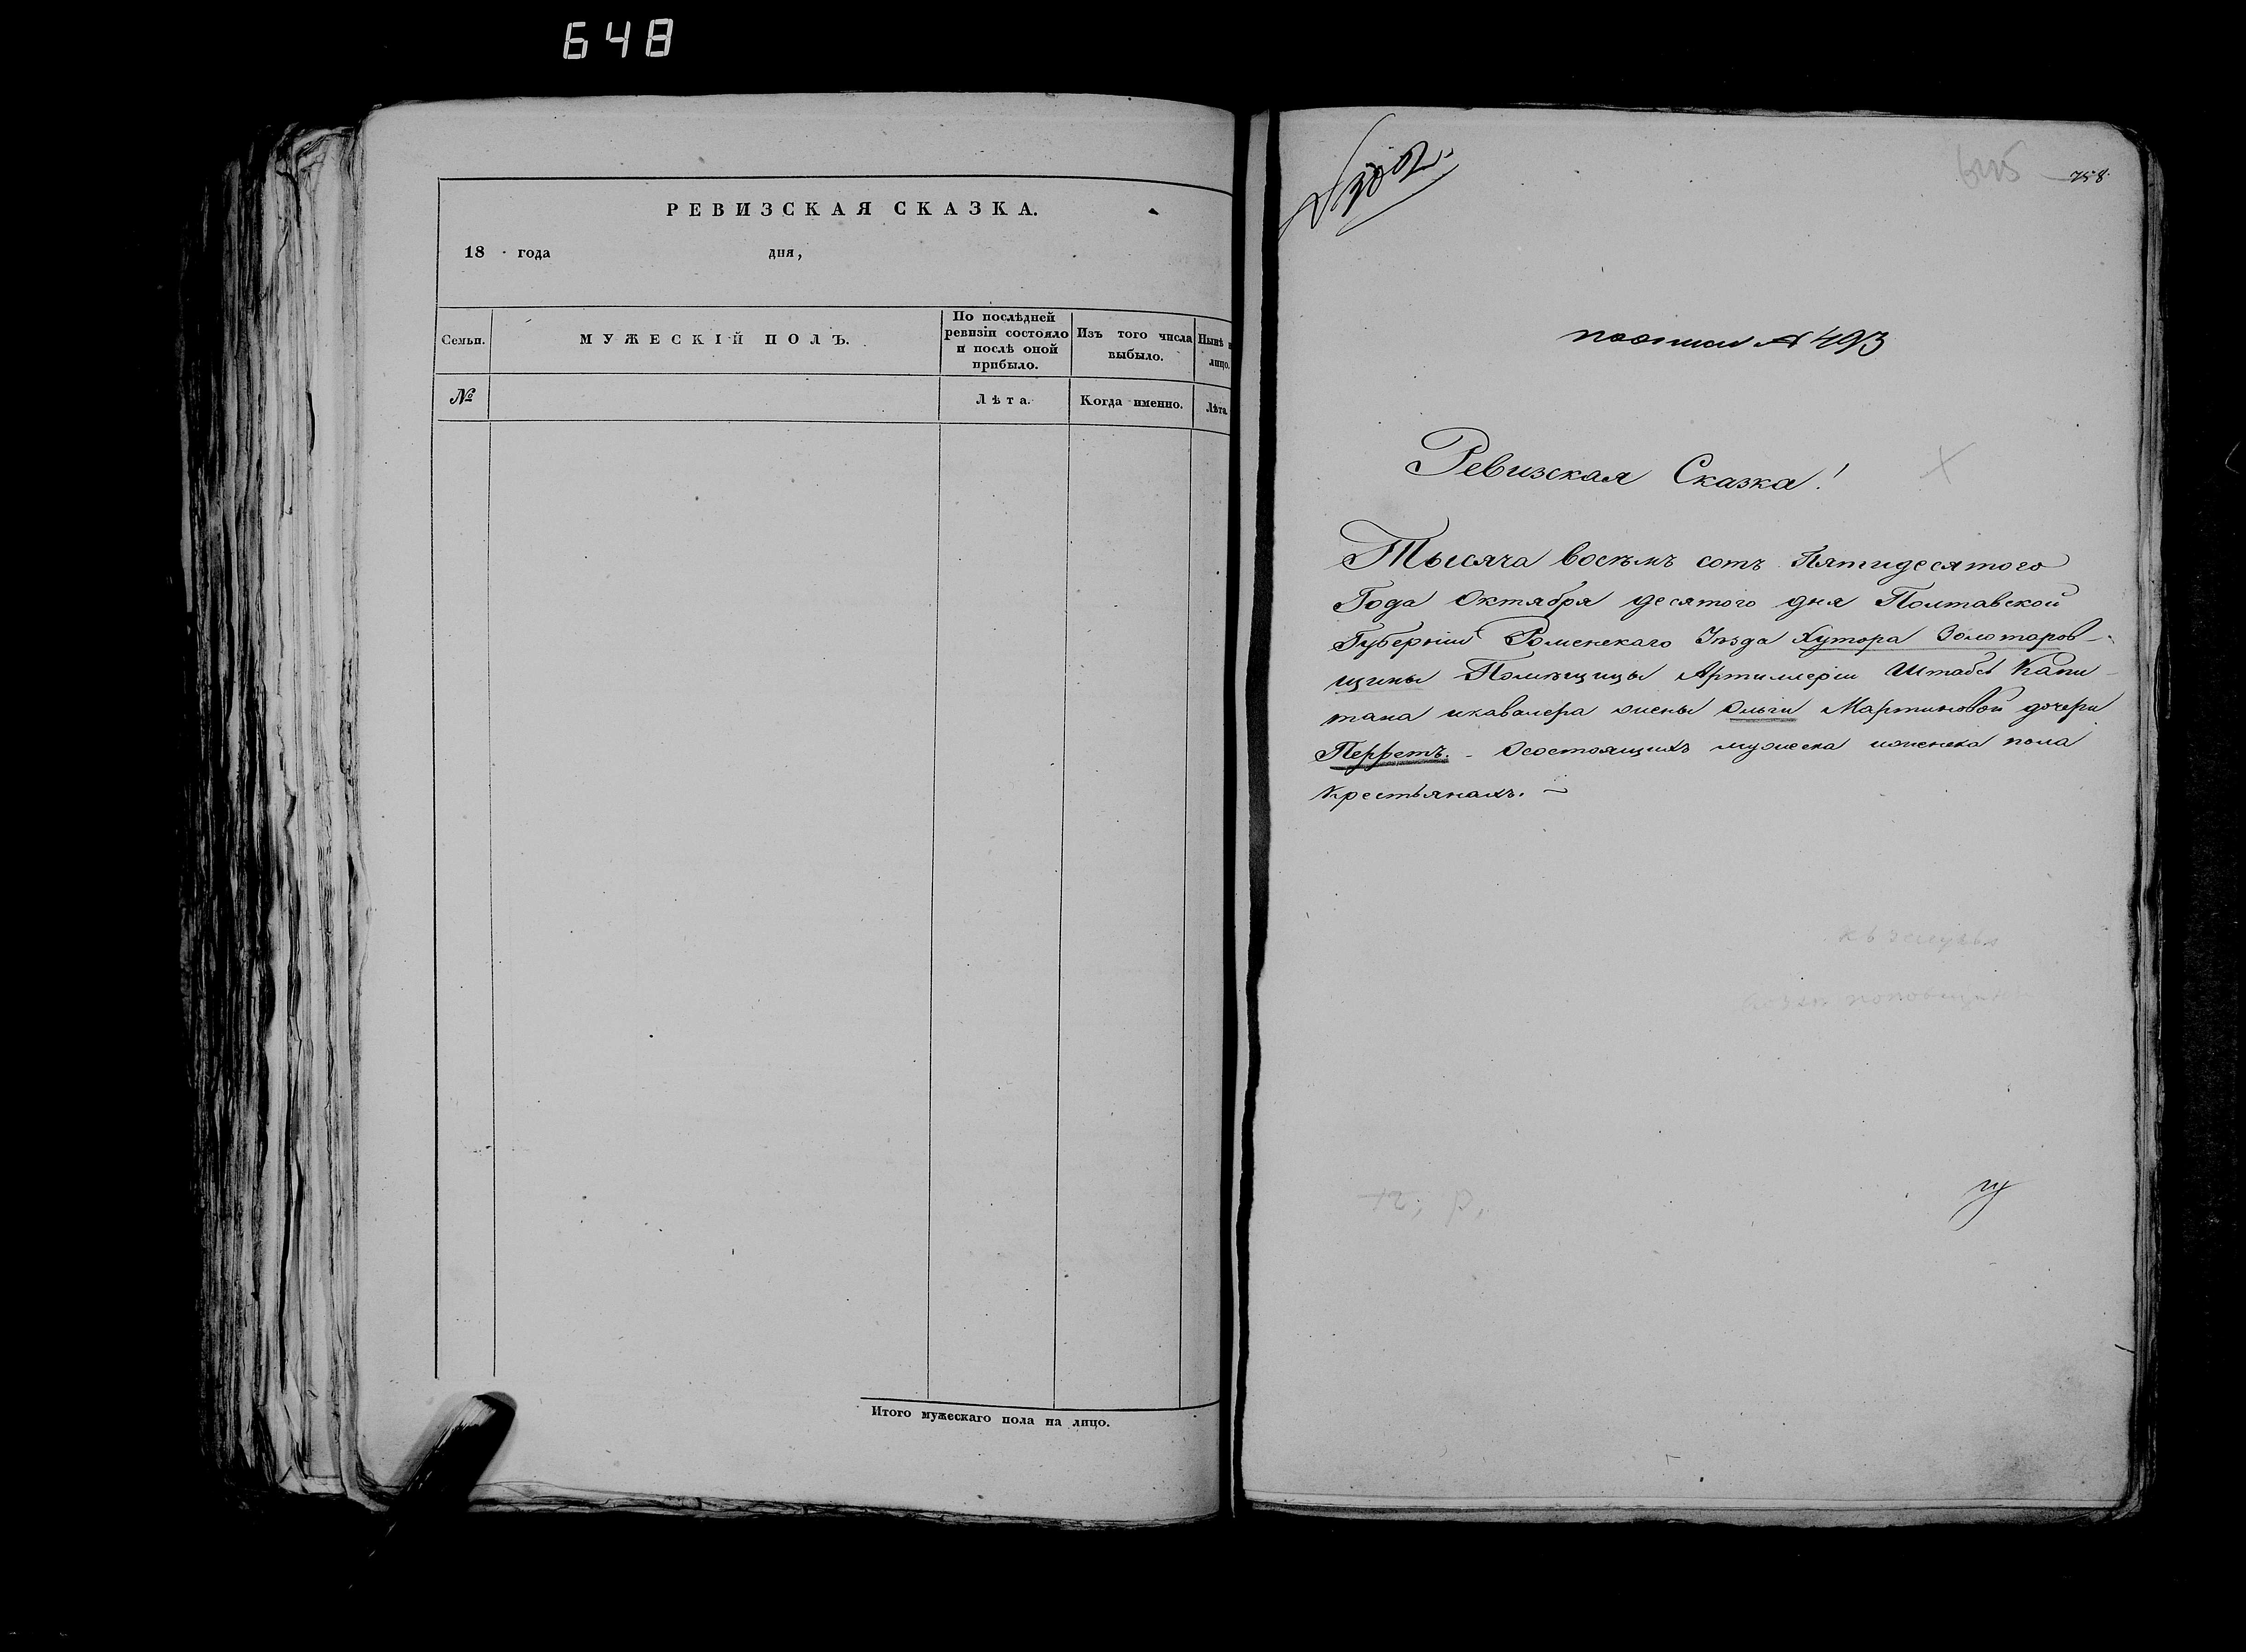 648
РЕВИЗСКАЯ СКАЗКА.
18 года дня,
Семьи.
МУЖЕСКІЙ ПОЛЪ.
По послѣдней
ревизіи состояло
и послѣ оной
прибыло.
Изъ того числа
выбыло.
Нынѣ
лицо.
№
Лѣта.
Когда именно.
Лѣта
Итого мужескаго пола на лицо.
758
№ 493
Ревизская Сказка!
Тысяча восѣмъ сотъ Пятидесятого
Года Октября десятого дня Полтавской
Губерніи Роменскаго Уѣзда Хутора Золотаров-
щины Помѣщицы Артиллеріи Штабсъ Капи-
тана икавалера жены Ольги Мартиновой дочери
Перретъ. - Осостоящихъ мужеска иженска пола
крестьянахъ. -